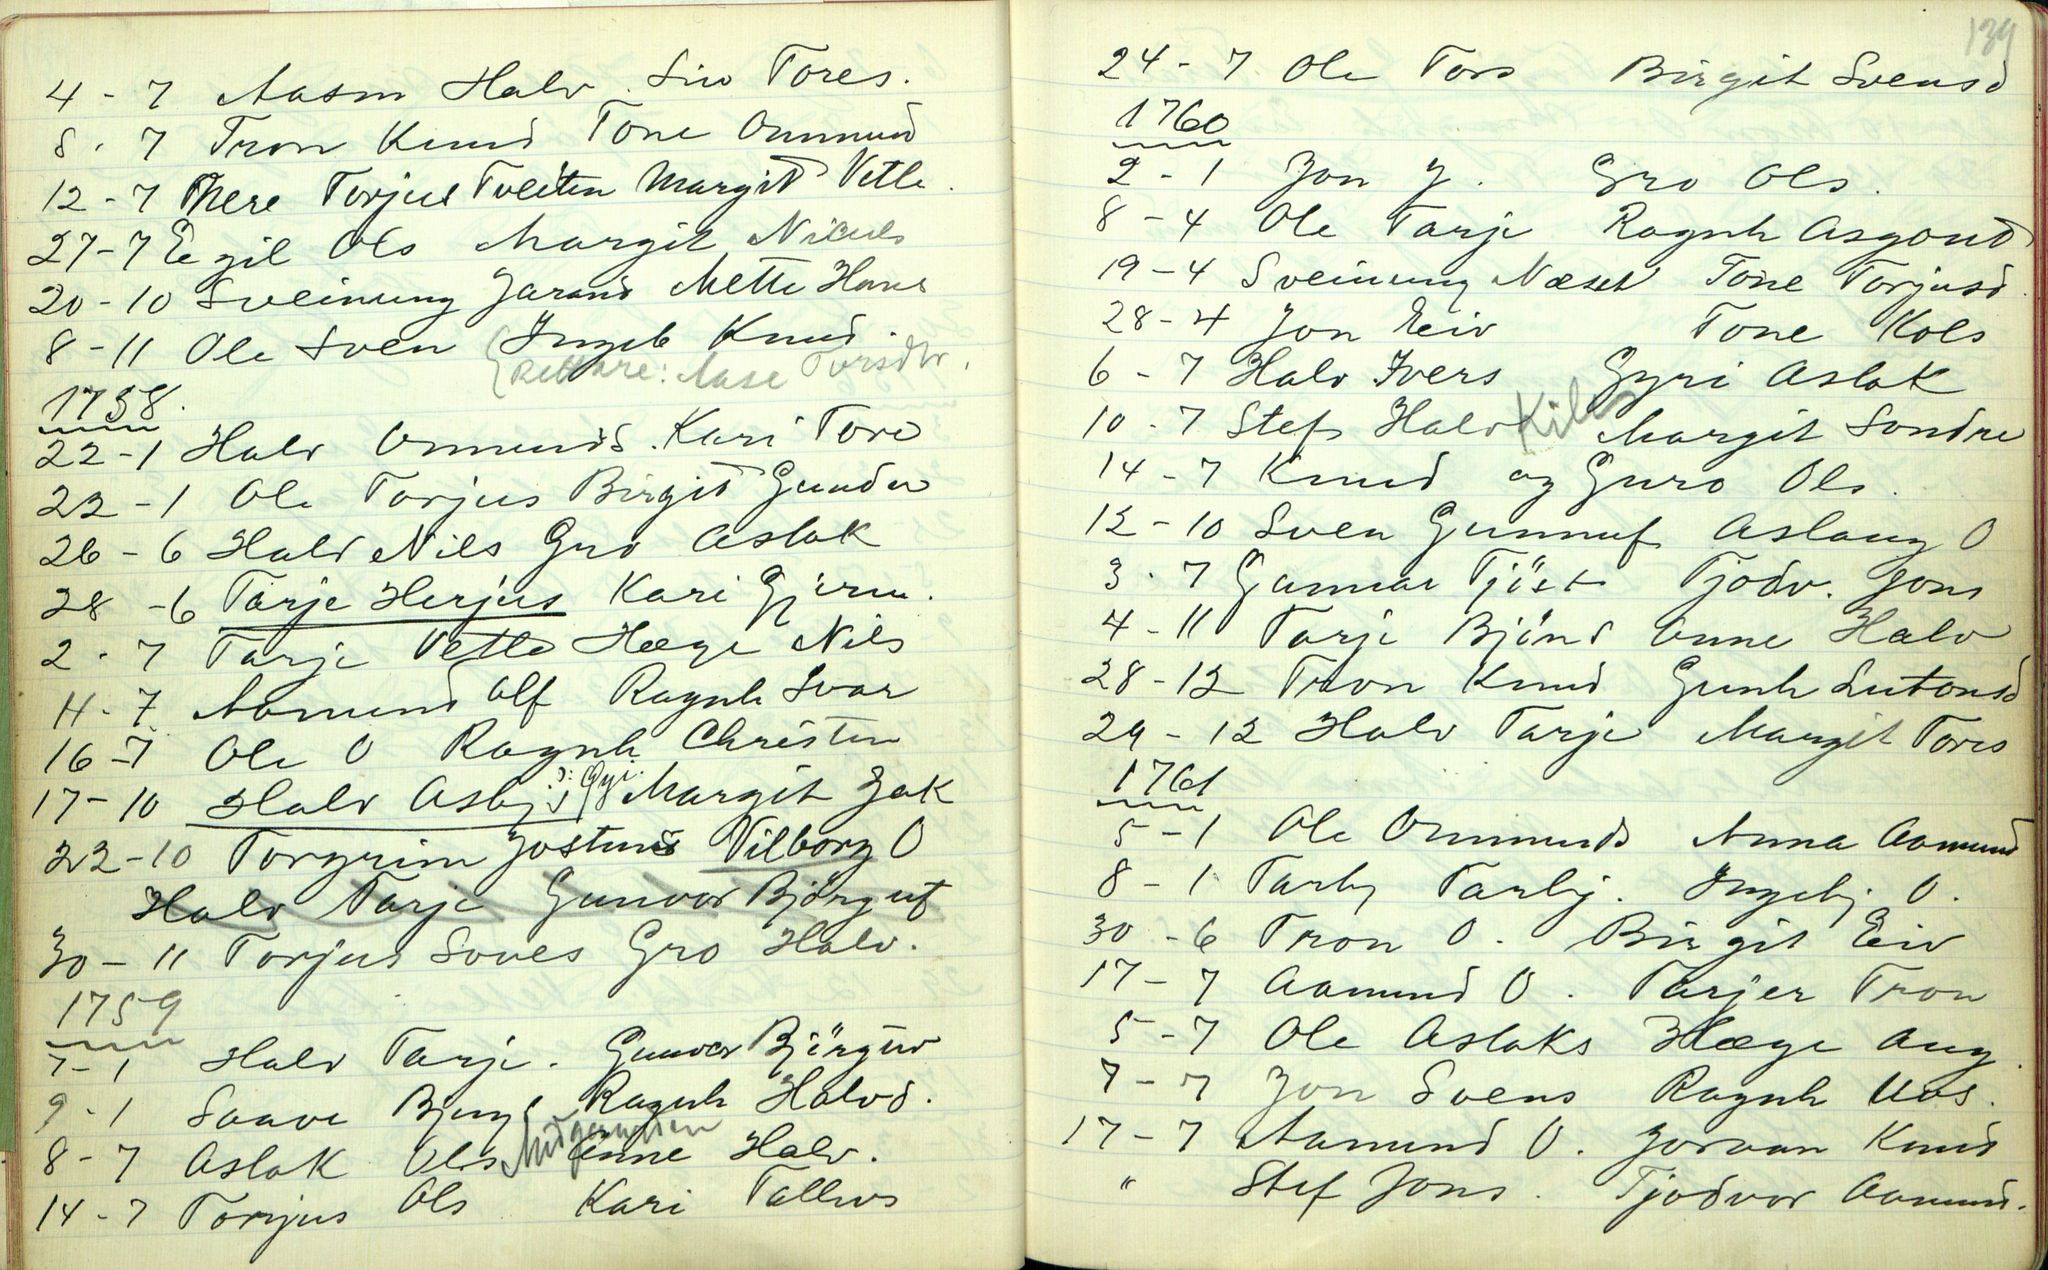 4 - 7 Aasm Halv. Siv Tores.
8 - 7 Tron Knud Tone Ommund
12 - 7 There Torjus Tveiten Margit Vetle.
27 - 7 Egil Ols Margit Niculs
20 - 10 Sveinung Jarand Mette Hans
8 - 11 Ole Sven Ingeb Knud.
(Rettare: Aase Torsdtr.
1758.
22 - 1 Halv Ommunds. Kari Tore
22 - 1 Ole Torjus Birgit Gunder
26 - 6 Halv Nils Gro Aslak
28 - 6 Tarje Herjus Kari Gjerm.
2 - 7 Tarje Vetle Hæge Nils
11 - 7 Aamund Olf Ragnh Ivar
16 - 7 Ole O Ragnh Christen
17 - 10 Halv Asbj Margit Jak
22 - 10 Torgrim Jostens Vilborg O
Halv Tarje Gunvor Björguf
30 - 11 Torjus Soves Gro Halv.
1759
7 - 1 Halv Tarje. Gunvor Björguv
9 - 1 Saave Bjug Ragnh Halvd.
8 - 7 Aslak Ols Midgarden Anne Halv.
14 - 7 Torjus Ols Kari Tallevs
139
24 - 7 Ole Tors Birgit Svensd
1760
2 - 1 Jon J. Gro Ols.
8 - 4 Ole Tarje Ragnh Asgout
19 - 4 Sveinung Næset Tone Torjusd.
28 - 4 Jon Eiv Tone Kols
6 - 7 Halv Ivers Gyri Aslak
10 - 7 Stef Halv Kilen Margit Sondre
14 - 7 Knud og Guro Ols.
12 - 10 Sven Gunnuf Aslaug O
3 - 7 Gunnar Tjöst Tjodv. Jons
4 - 11 Tarje Björnd Anne Halv
28 - 12 Tron Knud Gunh Sutonsd
29 - 12 Halv Tarje Margit Tores
1761
5 - 1 Ole Ommunds Anna Aamund
8 - 1 Tarbj Tarbj. Ingebj O.
30 - 6 Tron O. Birgit Eiv
17 - 7 Aamund O. Tarjer Tron
5 - 7 Ole Aslaks Hæge Aug.
7 - 7 Jon Svens Ragnh
17 - 7 Aamund O. Jorvan Knud
" Stef Jons. Tjodvor Aamund.